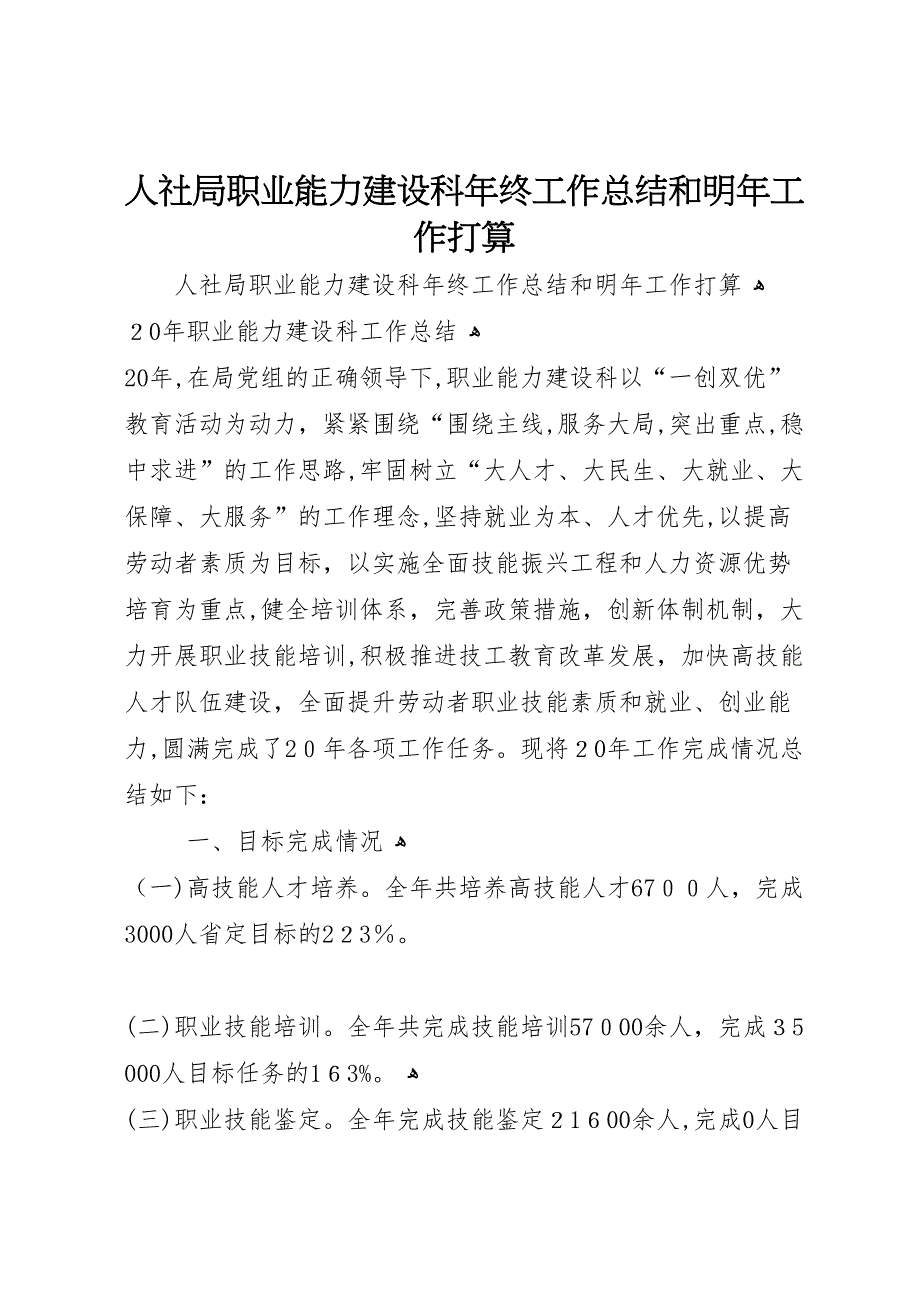 人社局职业能力建设科年终工作总结和明年工
作打算
人社局职业能力建设科年终工作总结和明年工作打算 ﻫ
20年职业能力建设科工作总结 ﻫ
20年,在局党组的正确领导下,职业能力建设科以“一创双优”
教育活动为动力，紧紧围绕“围绕主线,服务大局,突出重点,稳
中求进”的工作思路,牢固树立“大人才、大民生、大就业、大
保障、大服务”的工作理念,坚持就业为本、人才优先,以提高
劳动者素质为目标，以实施全面技能振兴工程和人力资源优势
培育为重点,健全培训体系，完善政策措施，创新体制机制，大
力开展职业技能培训,积极推进技工教育改革发展，加快高技能
人才队伍建设，全面提升劳动者职业技能素质和就业、创业能
力,圆满完成了20年各项工作任务。现将20年工作完成情况总
结如下：
一、目标完成情况 ﻫ
（一)高技能人才培养。全年共培养高技能人才6700人，完成
3000人省定目标的223％。
(二)职业技能培训。全年共完成技能培训57000余人，完成35
000人目标任务的163%。 ﻫ
(三)职业技能鉴定。全年完成技能鉴定21600余人,完成0人目